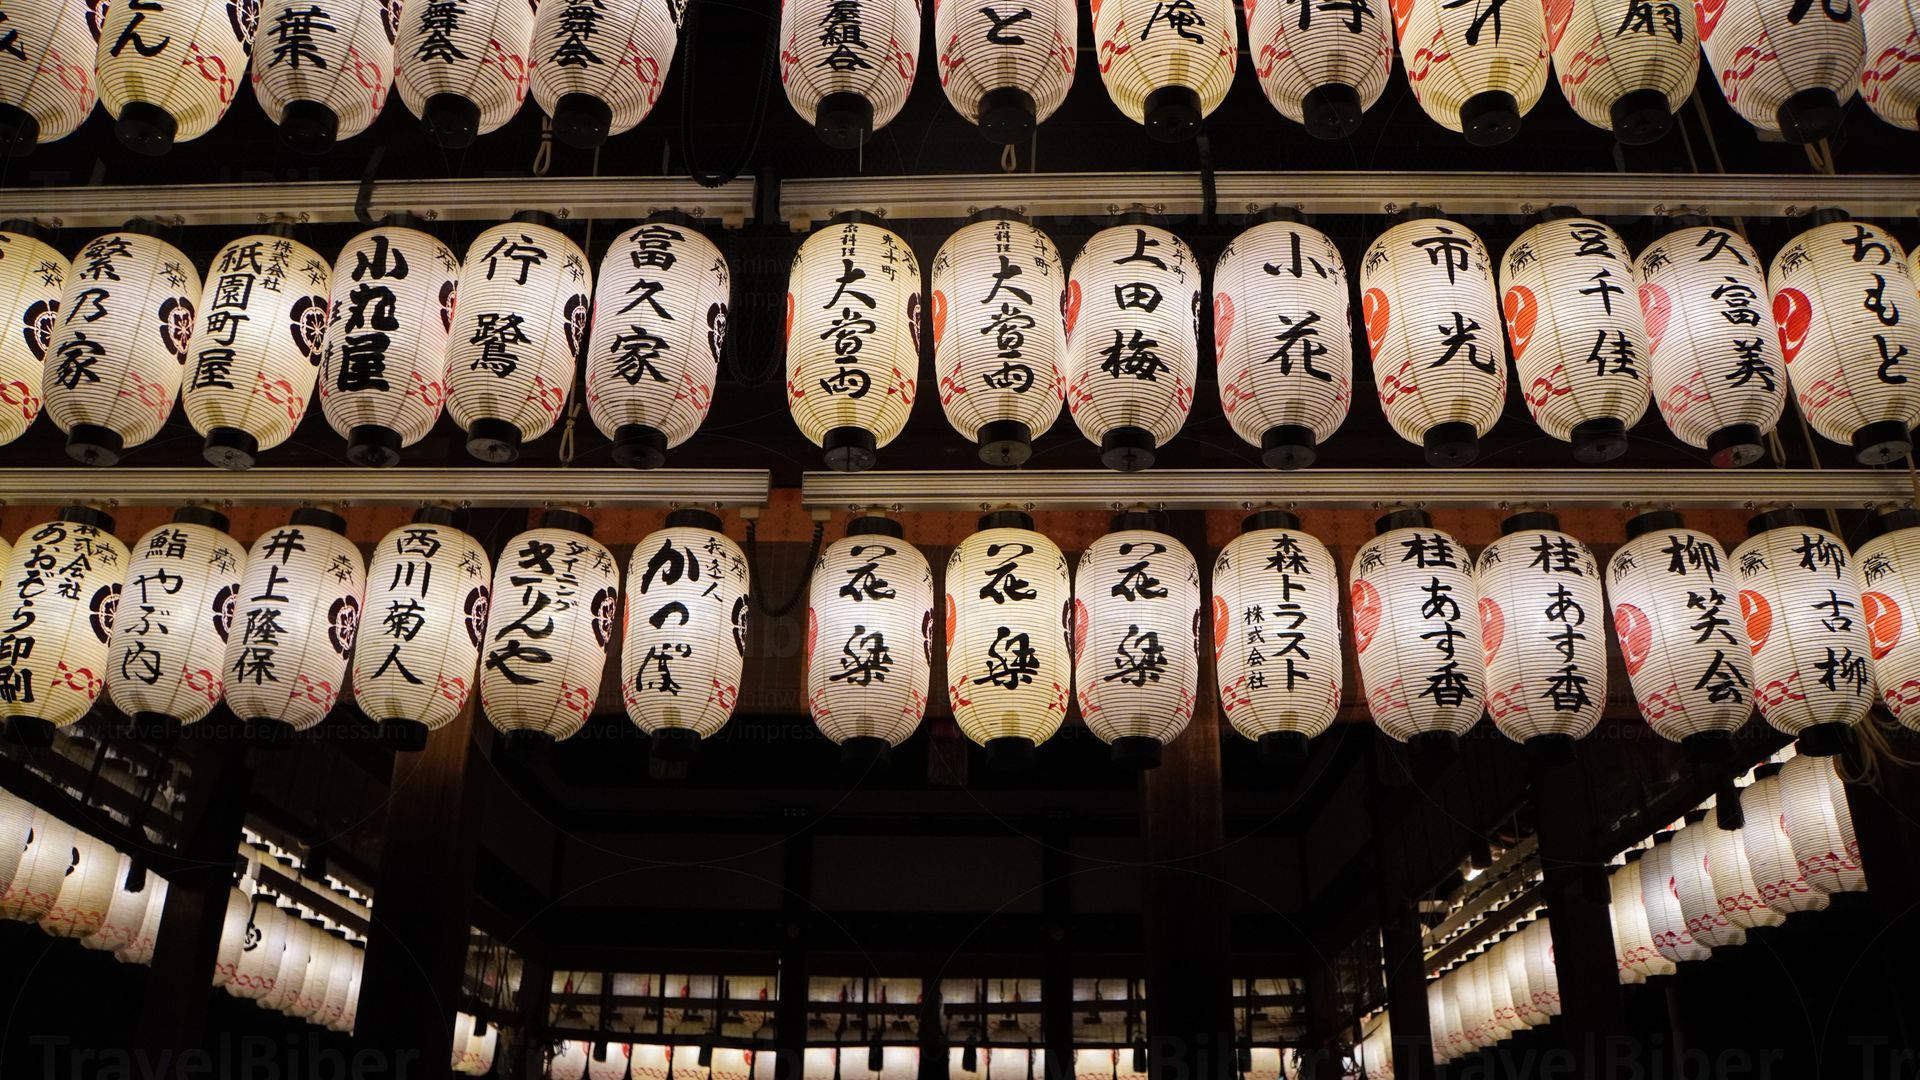 ん
葉
舞会
舞会
屋組合
と
庵
扇
繁乃家
株式会社
祇園町屋
小丸屋
佇鷺
富久家
先斗町
京料理
大當両
先斗町
京料理
大當両
先斗町
上田梅
小花
市光
豆千佳
久富美
ちもと
株式会社
あおぞら印刷
奉
鮨やぶ内
奉
井上隆保
奉
西川菊人
奉
ダイニング
きりんや
奉
かっぽ
花楽
花楽
花楽
森トラスト
株式会社
桂あす香
桂あす香
柳笑会
柳古柳
TravelBiber
www.travel-biber.de/impressum